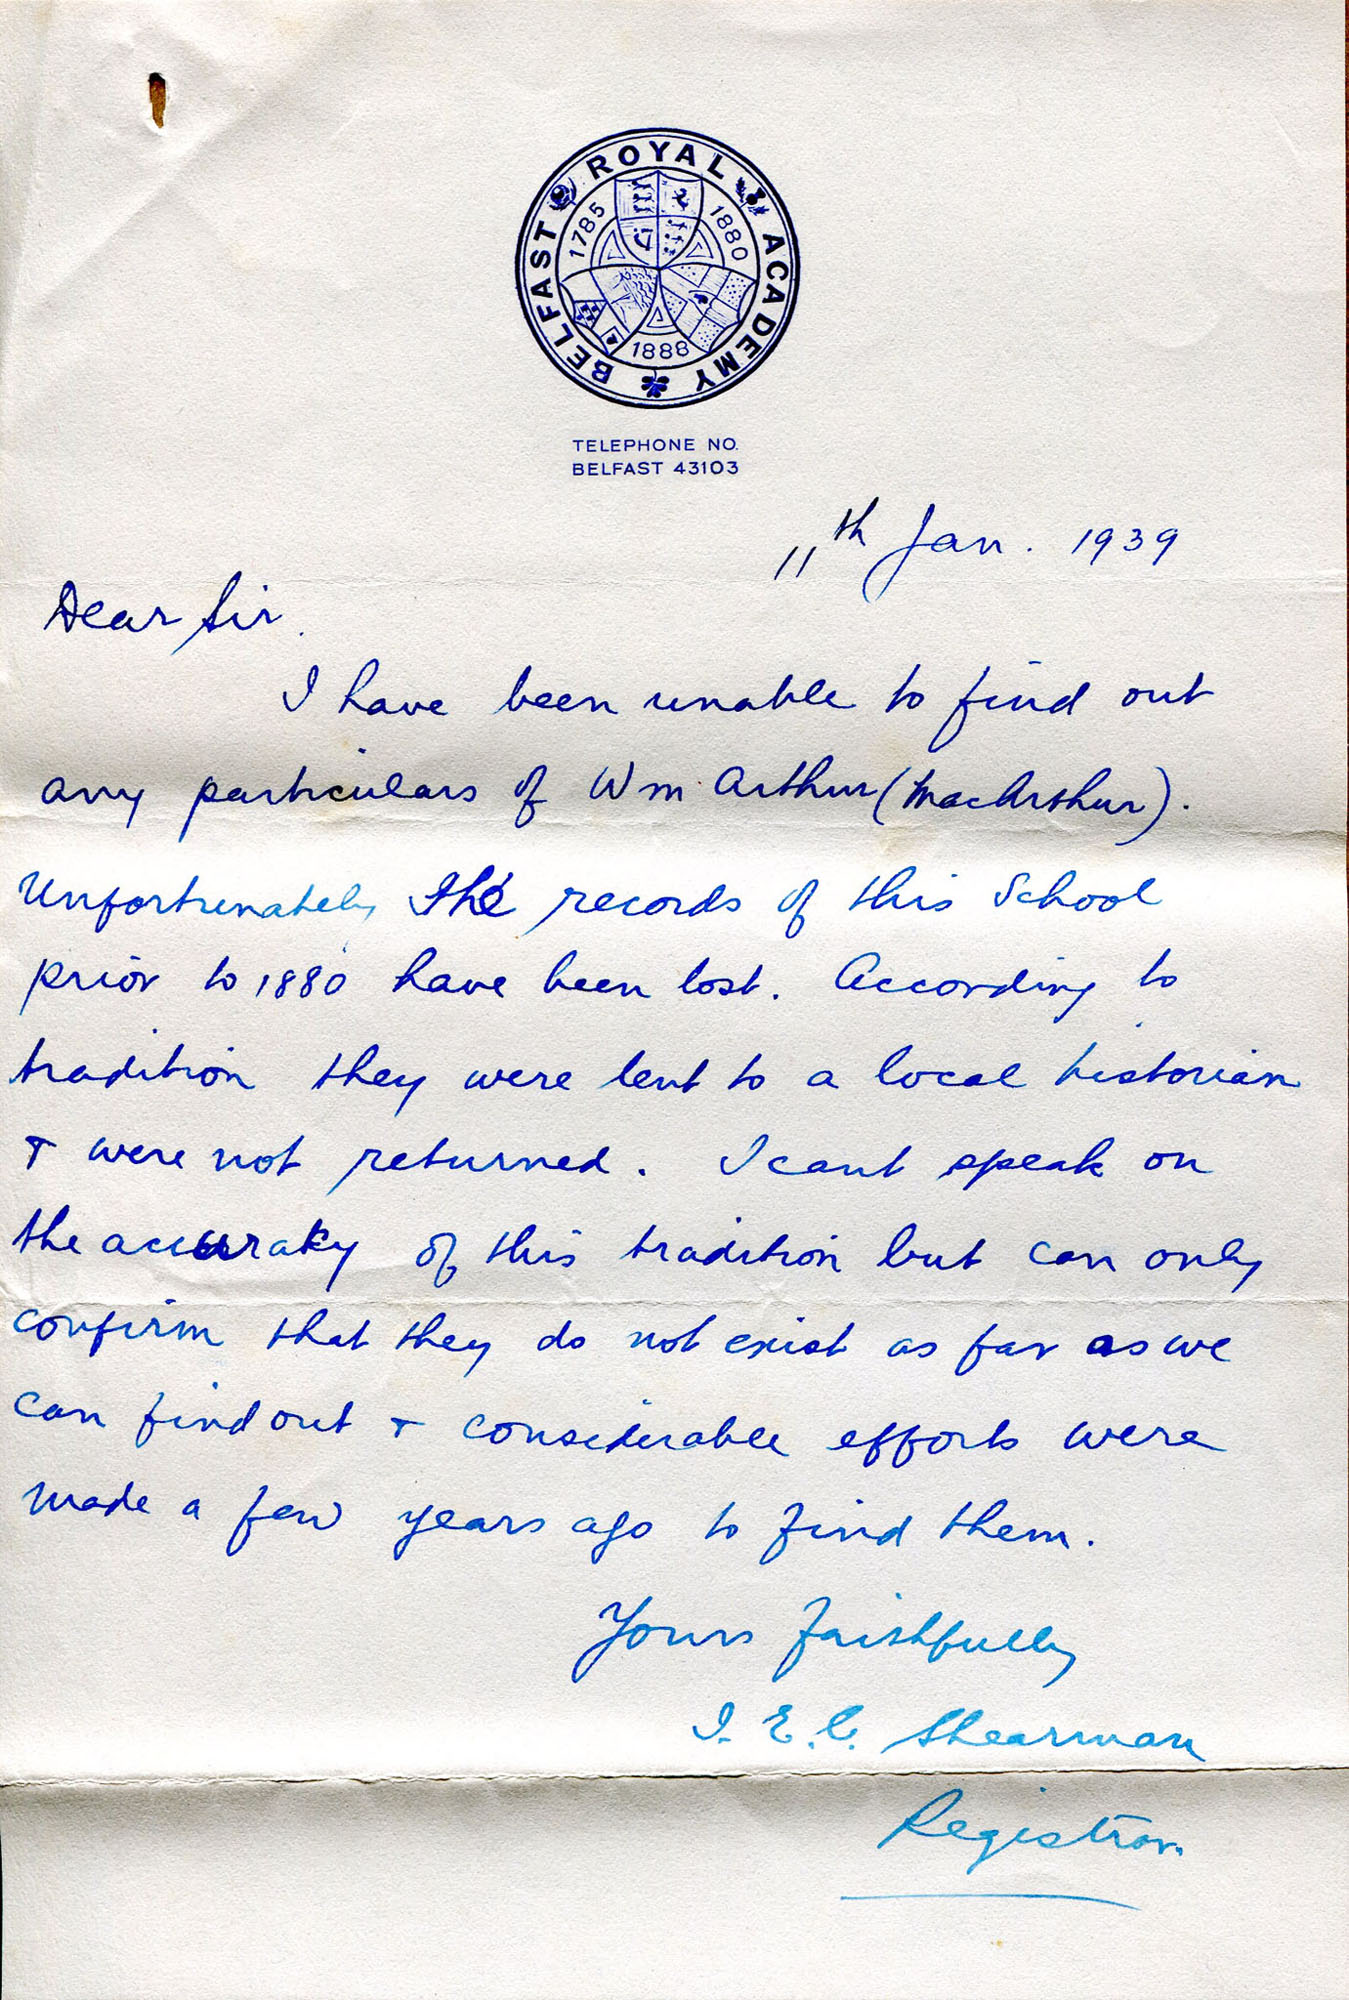 BELFAST ROYAL ACADEMY
1785 1880
1888
TELEPHONE NO.
BELFAST 43103
11th Jan. 1939
Dear Sir.
I have been unable to find out
any particulars of Wm. Arthur (MacArthur).
Unfortunately the records of this School
prior to 1880 have been lost. According to
tradition they were lent to a local historian
& were not returned. I cant speak on
the accuraky of this tradition but can only
confirm that they do not exist as far as we
can find out & considerable efforts were
made a few years ago to find them.
Yours faithfully
I. E. C. Shearman
Registrar.